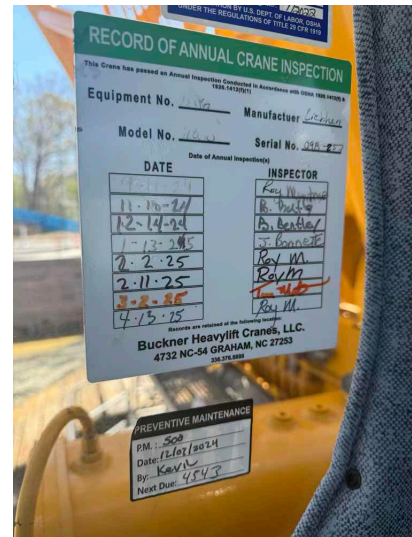 ON BY U.S. DEPT. OF LABOR, OSHA
UNDER THE REGULATIONS OF TITLE 29 CFR 1919
RECORD OF ANNUAL CRANE INSPECTION
This Crane has passed an Annual Inspection Conducted in Accordance with OSHA 1926.1412(f) &
1926.1412(f)(1)
Equipment No.
Manufactuer
Model No.
Serial No.
Date of Annual Inspection(s)
DATE INSPECTOR
Roy
11-10-24 B.
12-14-24 B. Bentley
1-13-25 J. Bonnette
2 2 25 Roy M.
2.11.25 Roy M
3-2-25
4.13.25 Roy M.
Records are retained at the following location:
Buckner Heavylift Cranes, LLC.
4732 NC-54 GRAHAM, NC 27253
336.376.8888
PREVENTIVE MAINTENANCE
P.M.: 500
Date: 12/07/2024
By: Kevin
Next Due: 4543